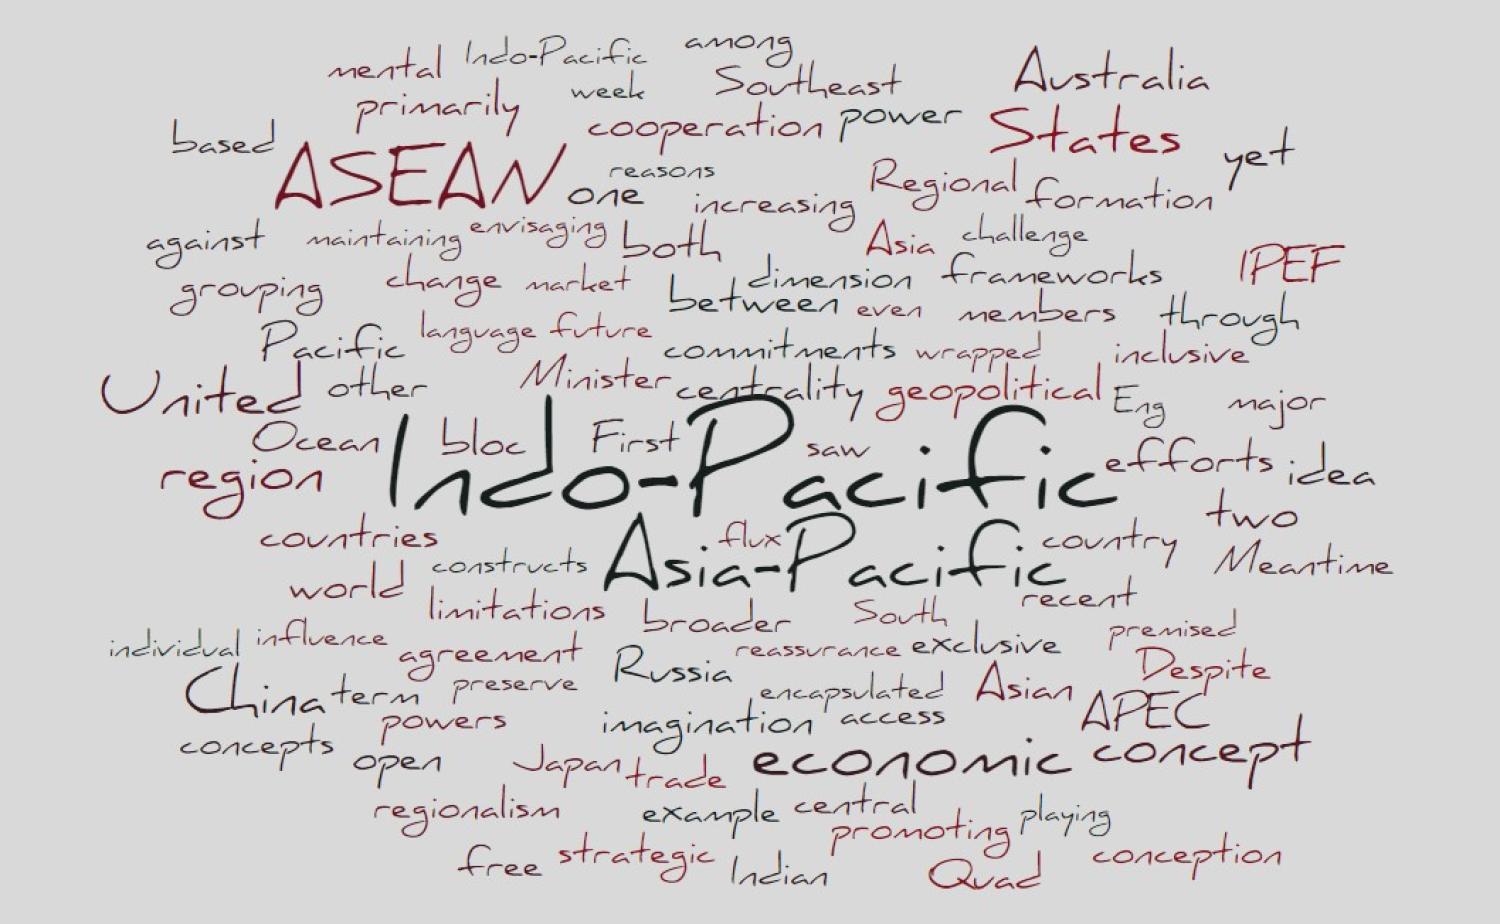 mental Indo-Pacific among
primarily week Southeast Australia
based cooperation power States yet
ASEAN one reasons increasing Regional formation
against maintaining envisaging both Asia challenge IPEF
grouping change market between dimension frameworks
Pacific language future even members through
United other Minister commitments wrapped inclusive
centrality geopolitical Eng major
Ocean bloc First saw efforts idea
region Indo-Pacific two
countries constructs Asia-Pacific flux country Meantime
world limitations broader South recent
individual influence agreement Russia reassurance exclusive premised
China term preserve encapsulated Asian Despite
powers imagination access APEC
concepts open Japan trade economic concept
regionalism example central promoting playing
free strategic Indian Quad conception